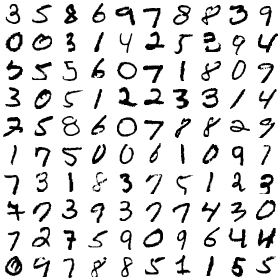 3 5 8 6 9 7 8 8 3 9
0 0 3 1 4 2 5 3 9 4
5 5 5 6 0 7 1 8 0 7
3 0 5 1 2 2 3 3 1 4
7 5 8 6 0 7 8 8 2 9
1 7 5 0 0 6 1 0 9 7
7 3 1 8 3 7 5 1 2 3
7 7 3 9 3 7 7 4 3 0
7 2 7 5 9 0 9 6 4 4
0 9 7 8 8 5 1 1 5 5